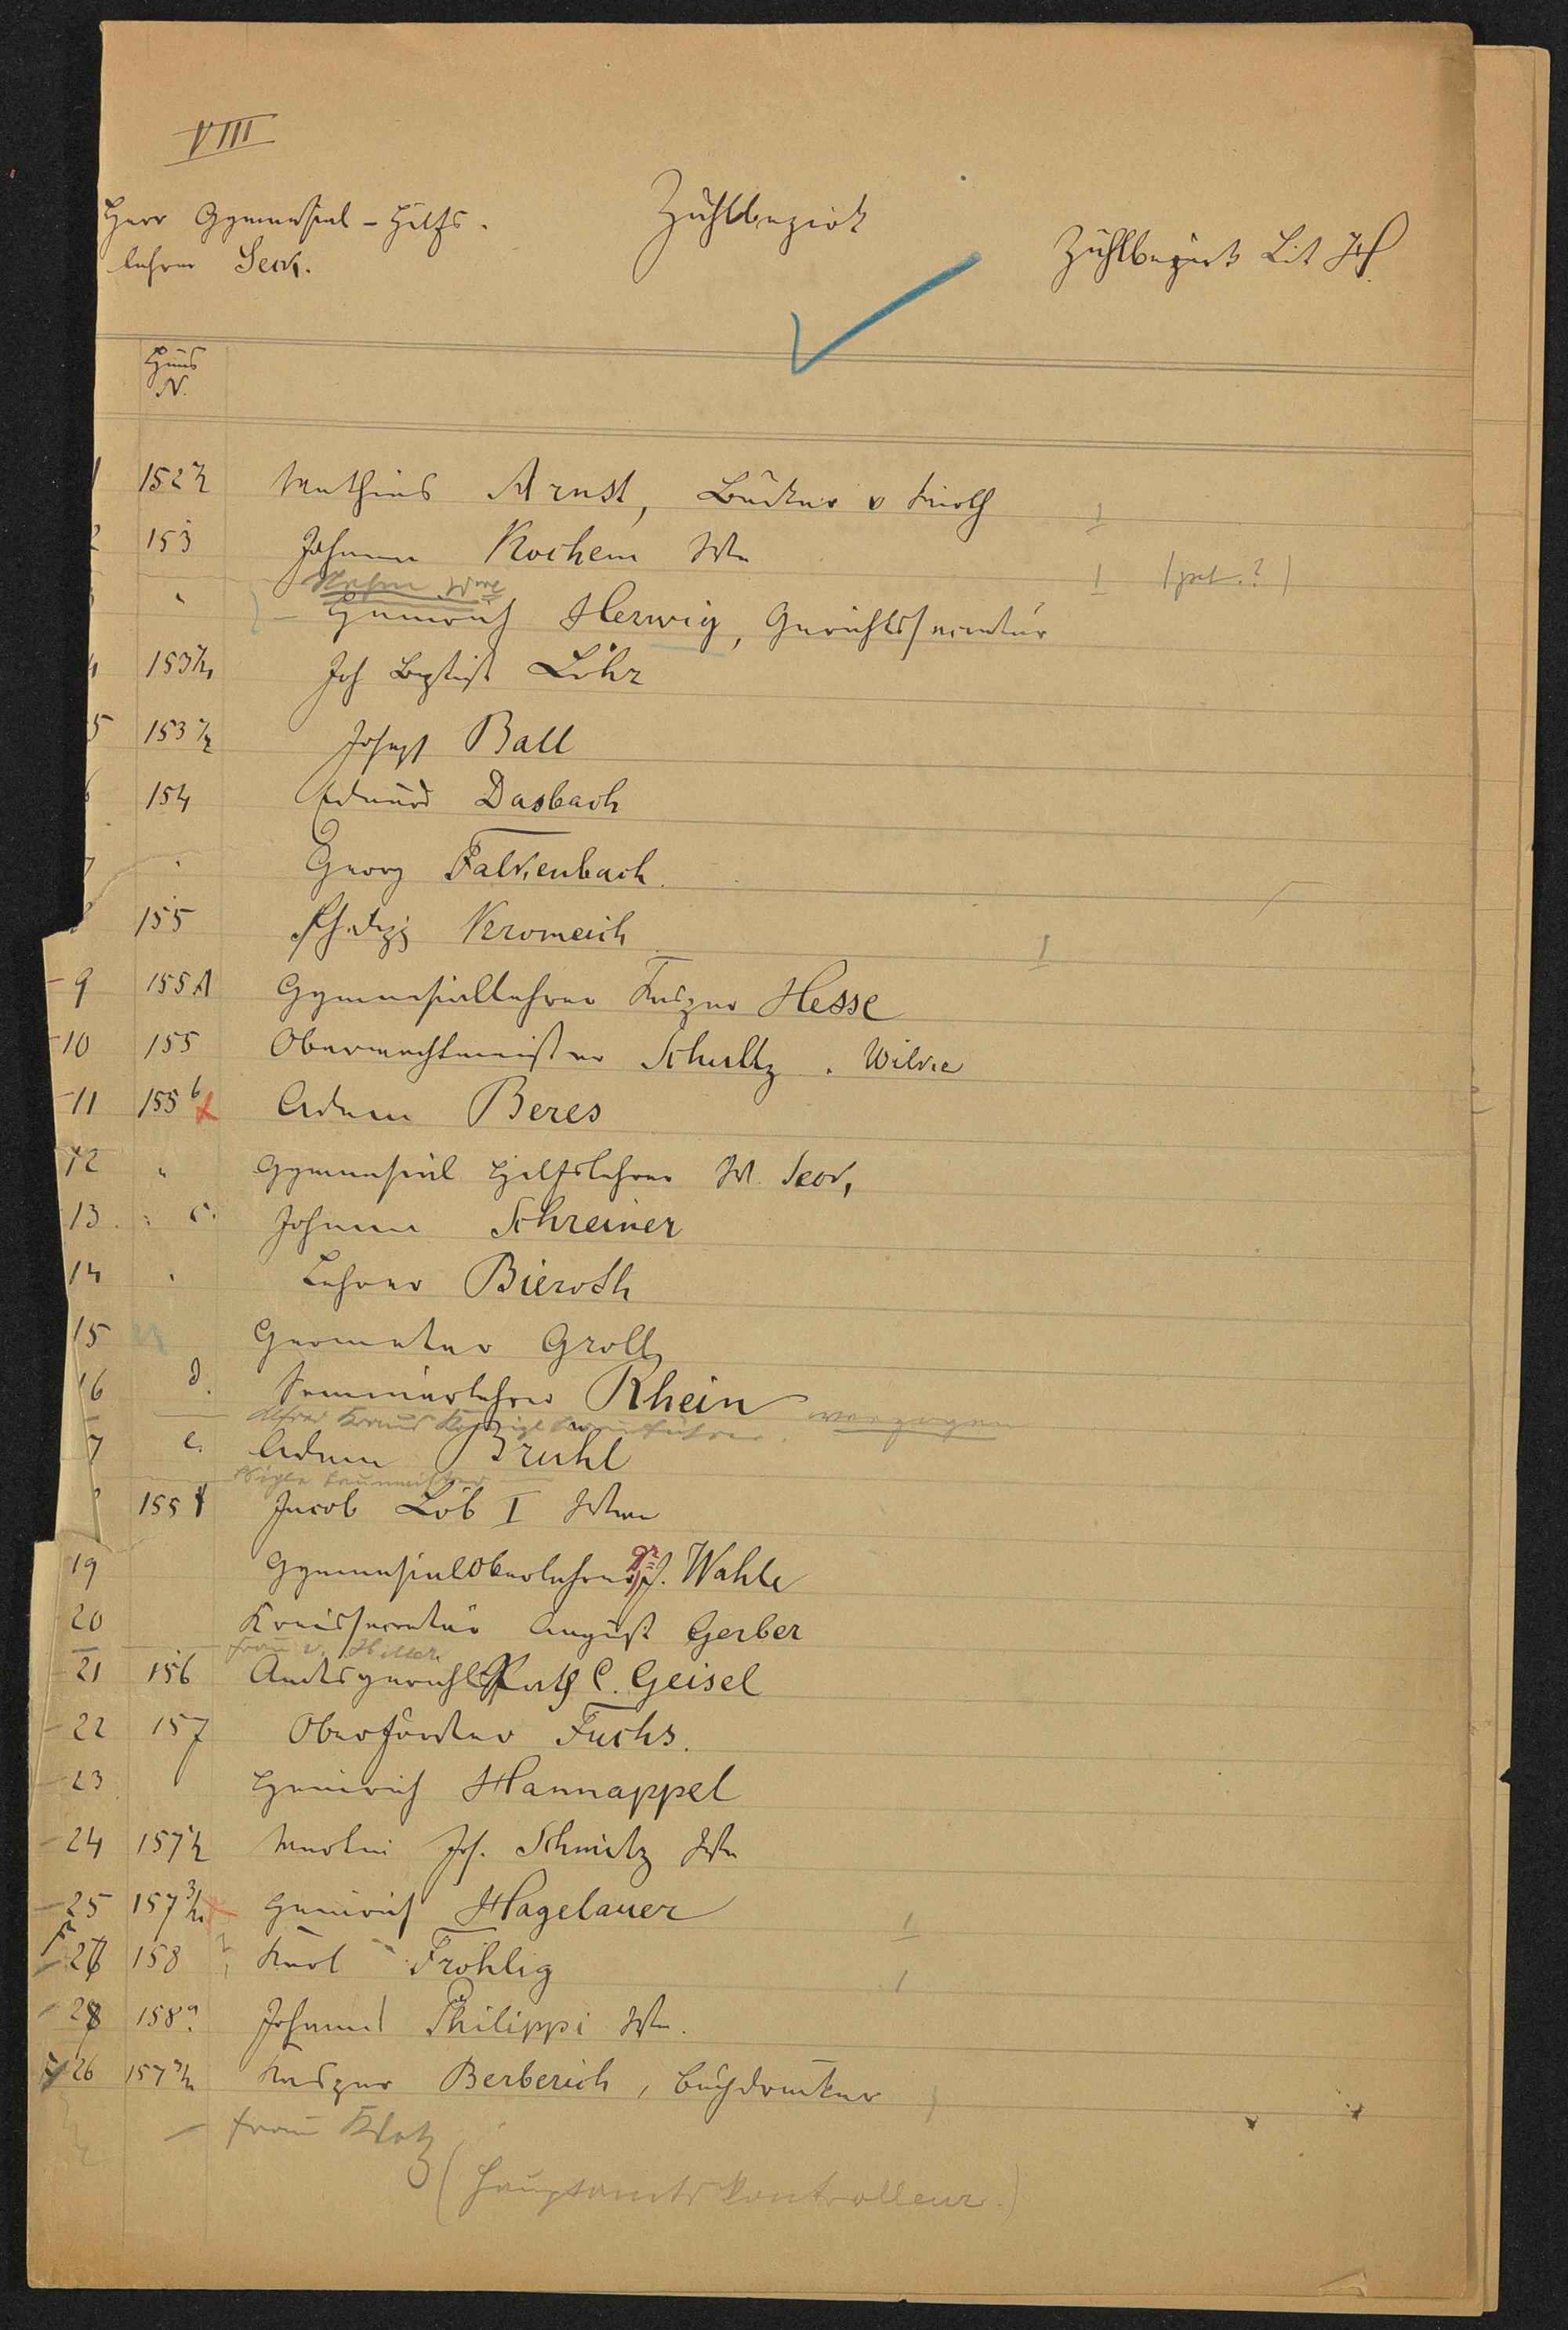 VIII
Herr Gymnasial-Hilfs-
lehrer Seck.
Zählbezirk
Zählbezirk Lit H
Haus
N.
1 152½ Mathias Arnst, Bäcker u Wirth I
2 153 Johann Kochem Wwe I
3 " Heinrich Herwig, Gerichtssecretär
4 153¼ Joh Baptist Löhr
5 153½ Joseph Ball
6 154 Eduard Dasbach
7 " Georg Falkenbach.
8 155 Kromeich I
9 155 A Gymnasiallehrer Kaspar Hesse
10 155 Oberwachtmeister Schultz. Wilke
11 155 b Adam Beres
12 " Gymnasial Hilfslehrer W. Seck,
13. " c. Johann Schreiner
14 " Lehrer Bieroth
15 Geometer Groll
16 d. Seminarlehrer Rhein verzogen
7 e. Adam Bruhl
Baumeister
155 f Jacob Löb I Wwe
19 Gymnasialoberlehrer J. Wahle
20 Kreissecretär August Gerber
Frau v. Hiller
21 156 Amtsgerichtsrath C. Geisel
22 157 Oberförster Fuchs.
23 Heinrich Hannappel
24 157½ Martin Jos. Schmitz Wwe
25 157¾ Heinrich Hagelauer I
27 158 Karl Fröhlig I
28 158a. Johann Philippi Wwe.
26 157¾ Kaspar Berberich, Buchdrucker
- Frau Klotz
(Hauptamts Kontrolleur.)